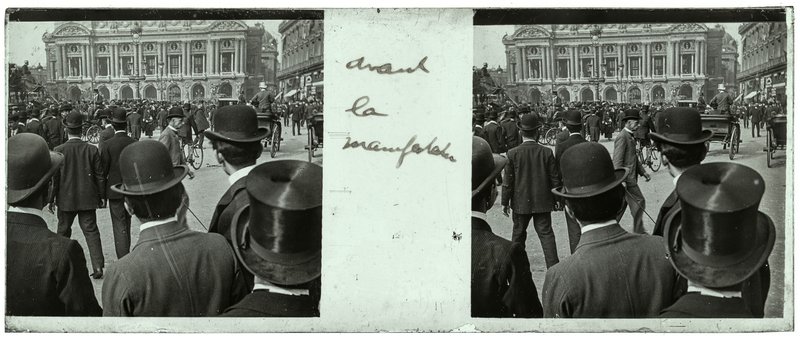 avant
la
manifestation